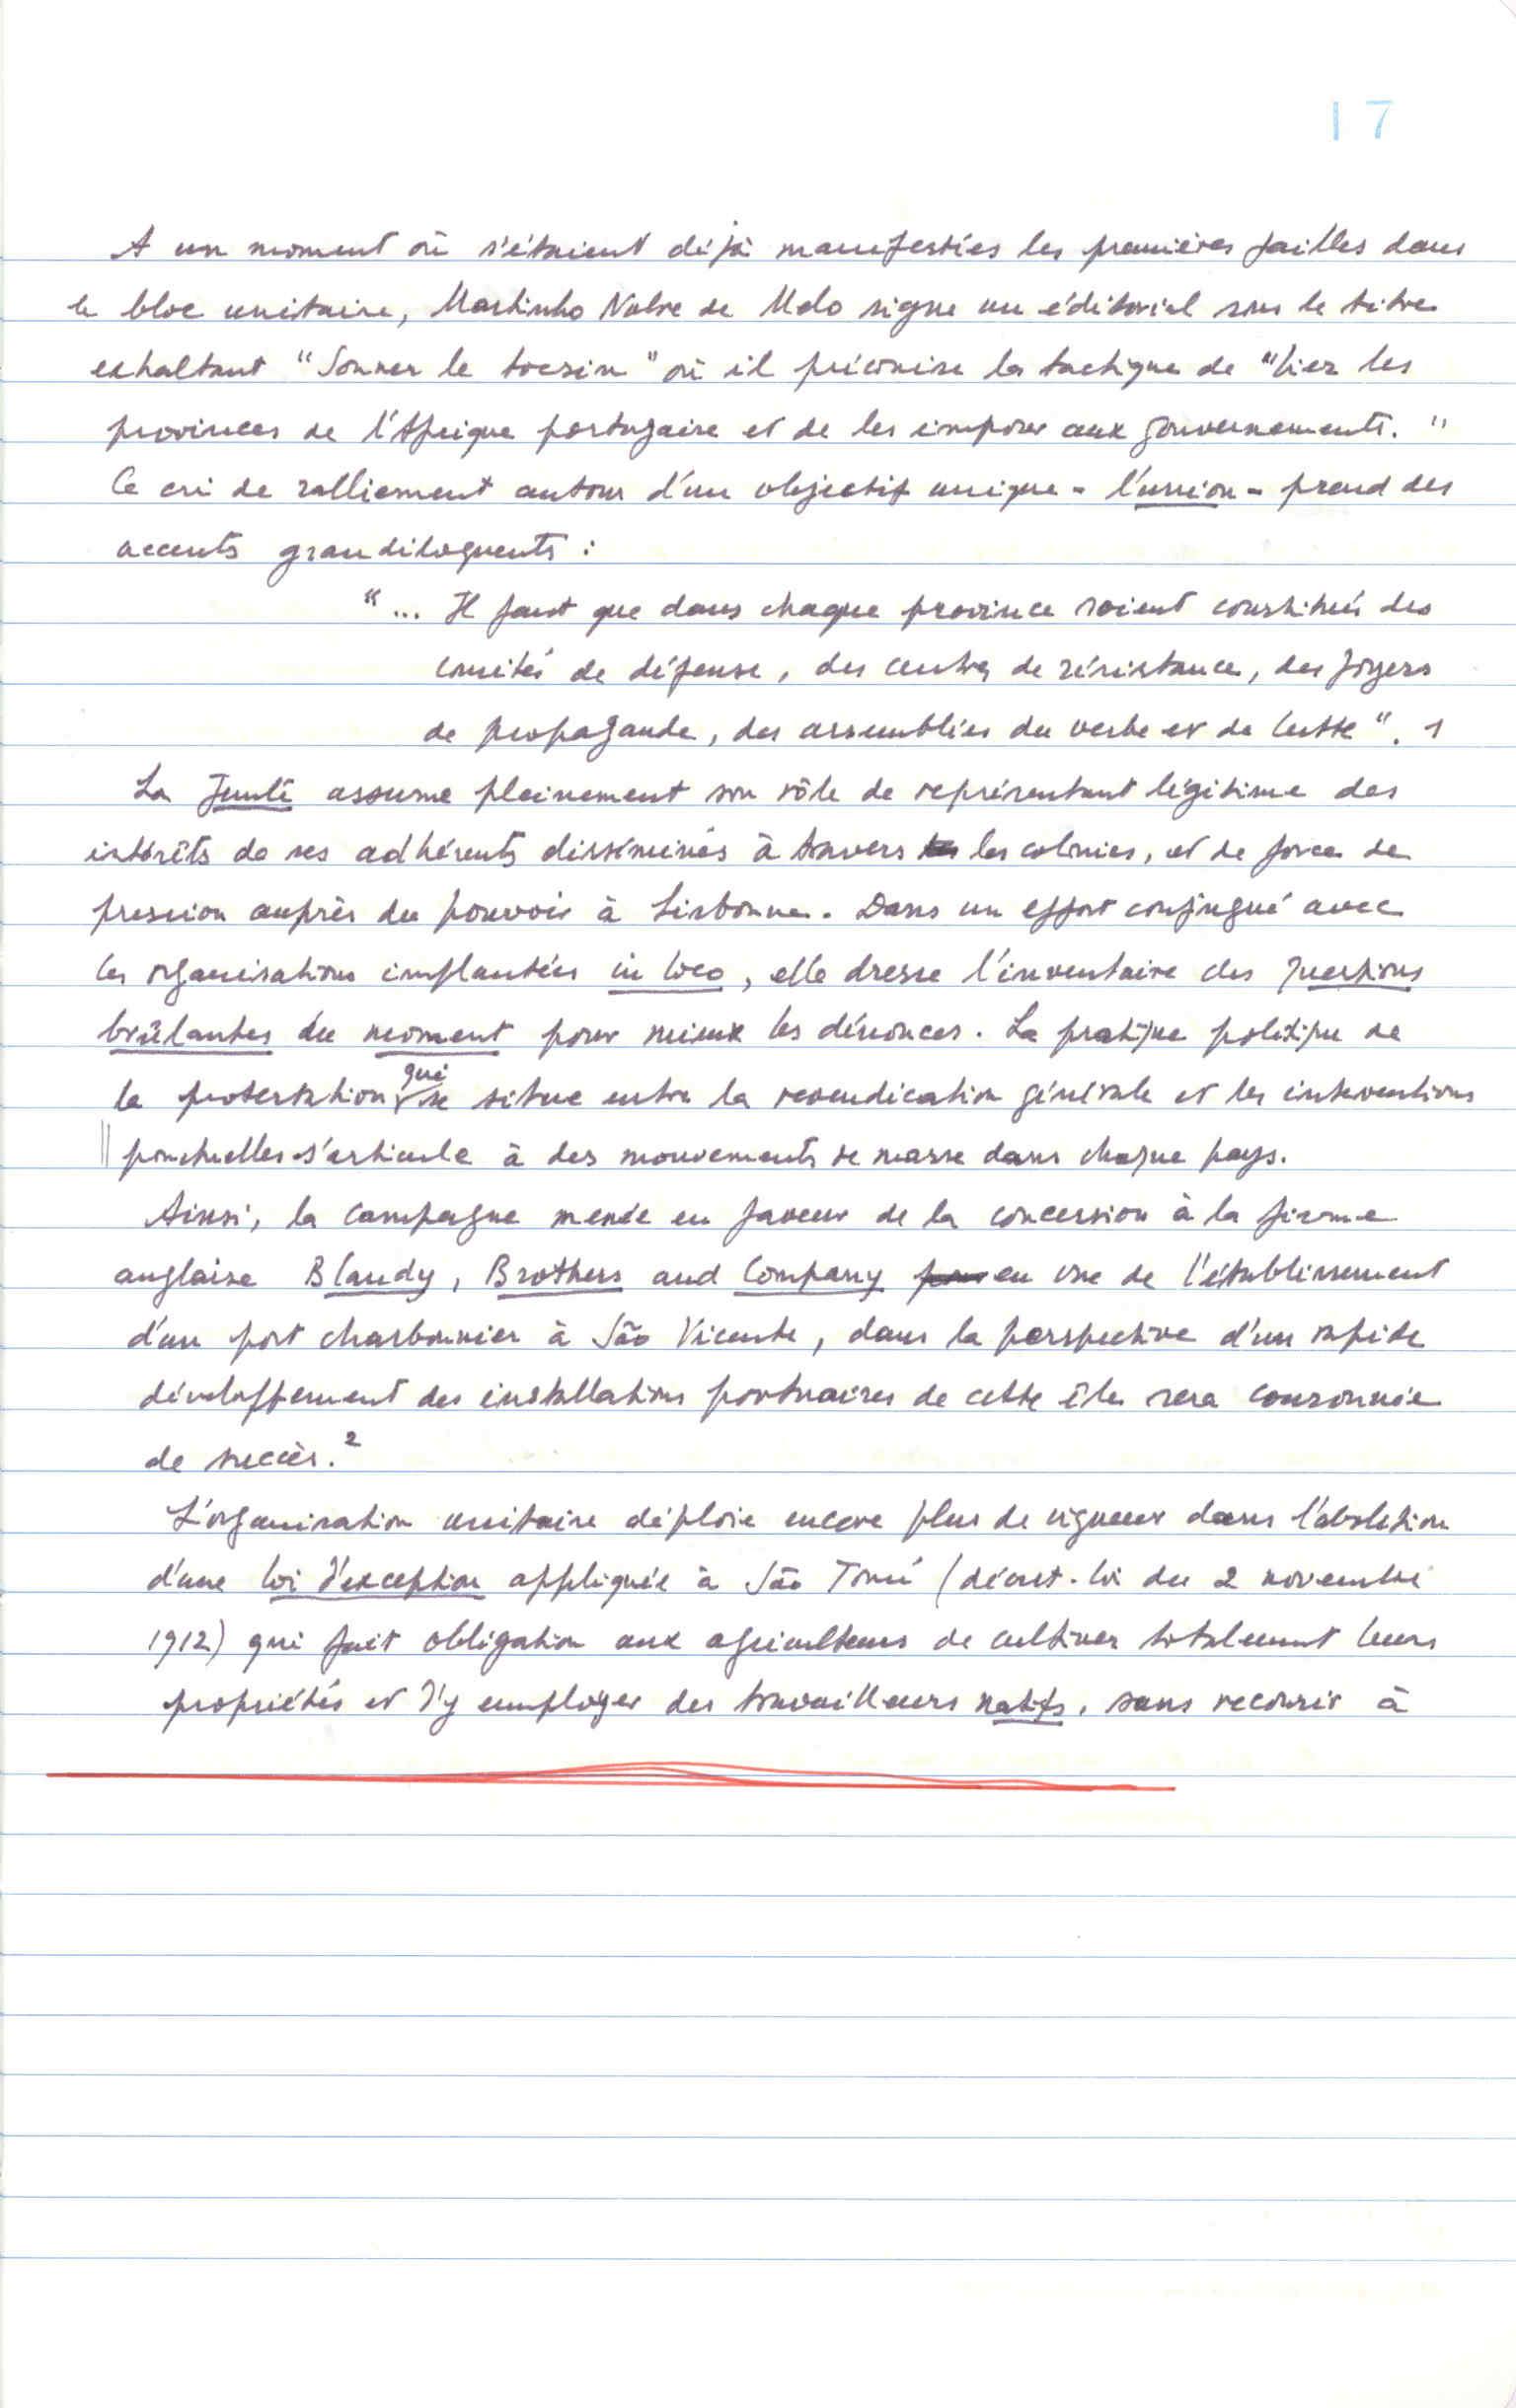 17
A un moment où s'étaient déjà manifestées les premières failles dans
le bloc unitaire, Martinho Nobre de Melo signe un éditorial sous le titre
exhaltant "Sonner le tocsin" où il préconise la tactique de "lier les
provinces de l'Afrique portugaise et de les imposer aux gouvernements."
Ce cri de ralliement autour d'un objectif unique - l'union - prend des
accents grandiloquents :
"... Il faut que dans chaque province soient constitués des
comités de défense, des centres de résistance, des foyers
de propagande, des assemblées du verbe et de lutte". 1
La Junta assume pleinement son rôle de représentant légitime des
intérêts de ses adhérents disséminés à travers les colonies, et de force de
pression auprès du pouvoir à Lisbonne. Dans un effort conjugué avec
les organisations implantées in loco, elle dresse l'inventaire des questions
brûlantes du moment pour mieux les dénoncer. La pratique politique de
la protestation qui se situe entre la revendication générale et les interventions
ponctuelles s'articule à des mouvements de masse dans chaque pays.
Ainsi, la campagne menée en faveur de la concession à la firme
anglaise Blandy, Brothers and Company en vue de l'établissement
d'un port charbonnier à São Vicente, dans la perspective d'un rapide
développement des installations portuaires de cette île sera couronnée
de succès.²
L'organisation unitaire déploie encore plus de vigueur dans l'abolition
d'une loi d'exception appliquée à São Tomé (décret-loi du 2 novembre
1912) qui fait obligation aux agriculteurs de cultiver totalement leurs
propriétés et d'y employer des travailleurs natifs, sans recourir à